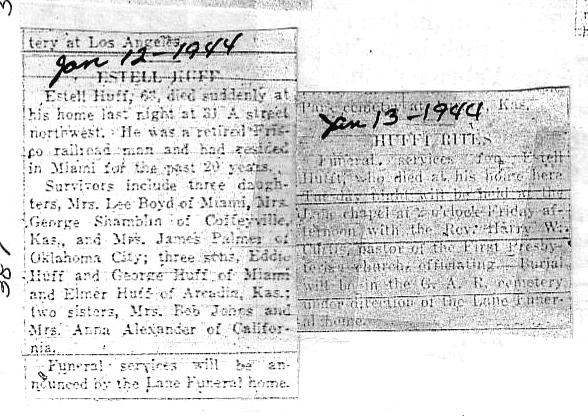 tery at Los Angeles.
Jan 12-1944
ESTELL HUFF
Estell Huff, 63, died suddenly at
his home last night at 31 A street
northwest. He was a retired Fris-
co railroad man and had resided
in Miami for the past 20 years.
Survivors include three daugh-
ters, Mrs. Lee Boyd of Miami, Mrs.
George Shamblin of Coffeyville,
Kas., and Mrs. James Palmer of
Oklahoma City; three sons, Eddie
Huff and George Huff of Miami
and Elmer Huff of Arcadia, Kas.;
two sisters, Mrs. Bob Johns and
Mrs. Anna Alexander of Califor-
nia.
Funeral services will be an-
nounced by the Lane Funeral home.
Kas.
Jan 13-1944
HUFFT RITES
Funeral services for Estell
Hufft, who died at his home here
Tuesday night will be held at the
Lane chapel at 2 o'clock Friday af-
ternoon with the Rev. Harry W.
pastor of the First Presby-
terian church, officiating. Burial
will be in the G. A. R. cemetery
under direction of the Lane Funer-
al home.
387